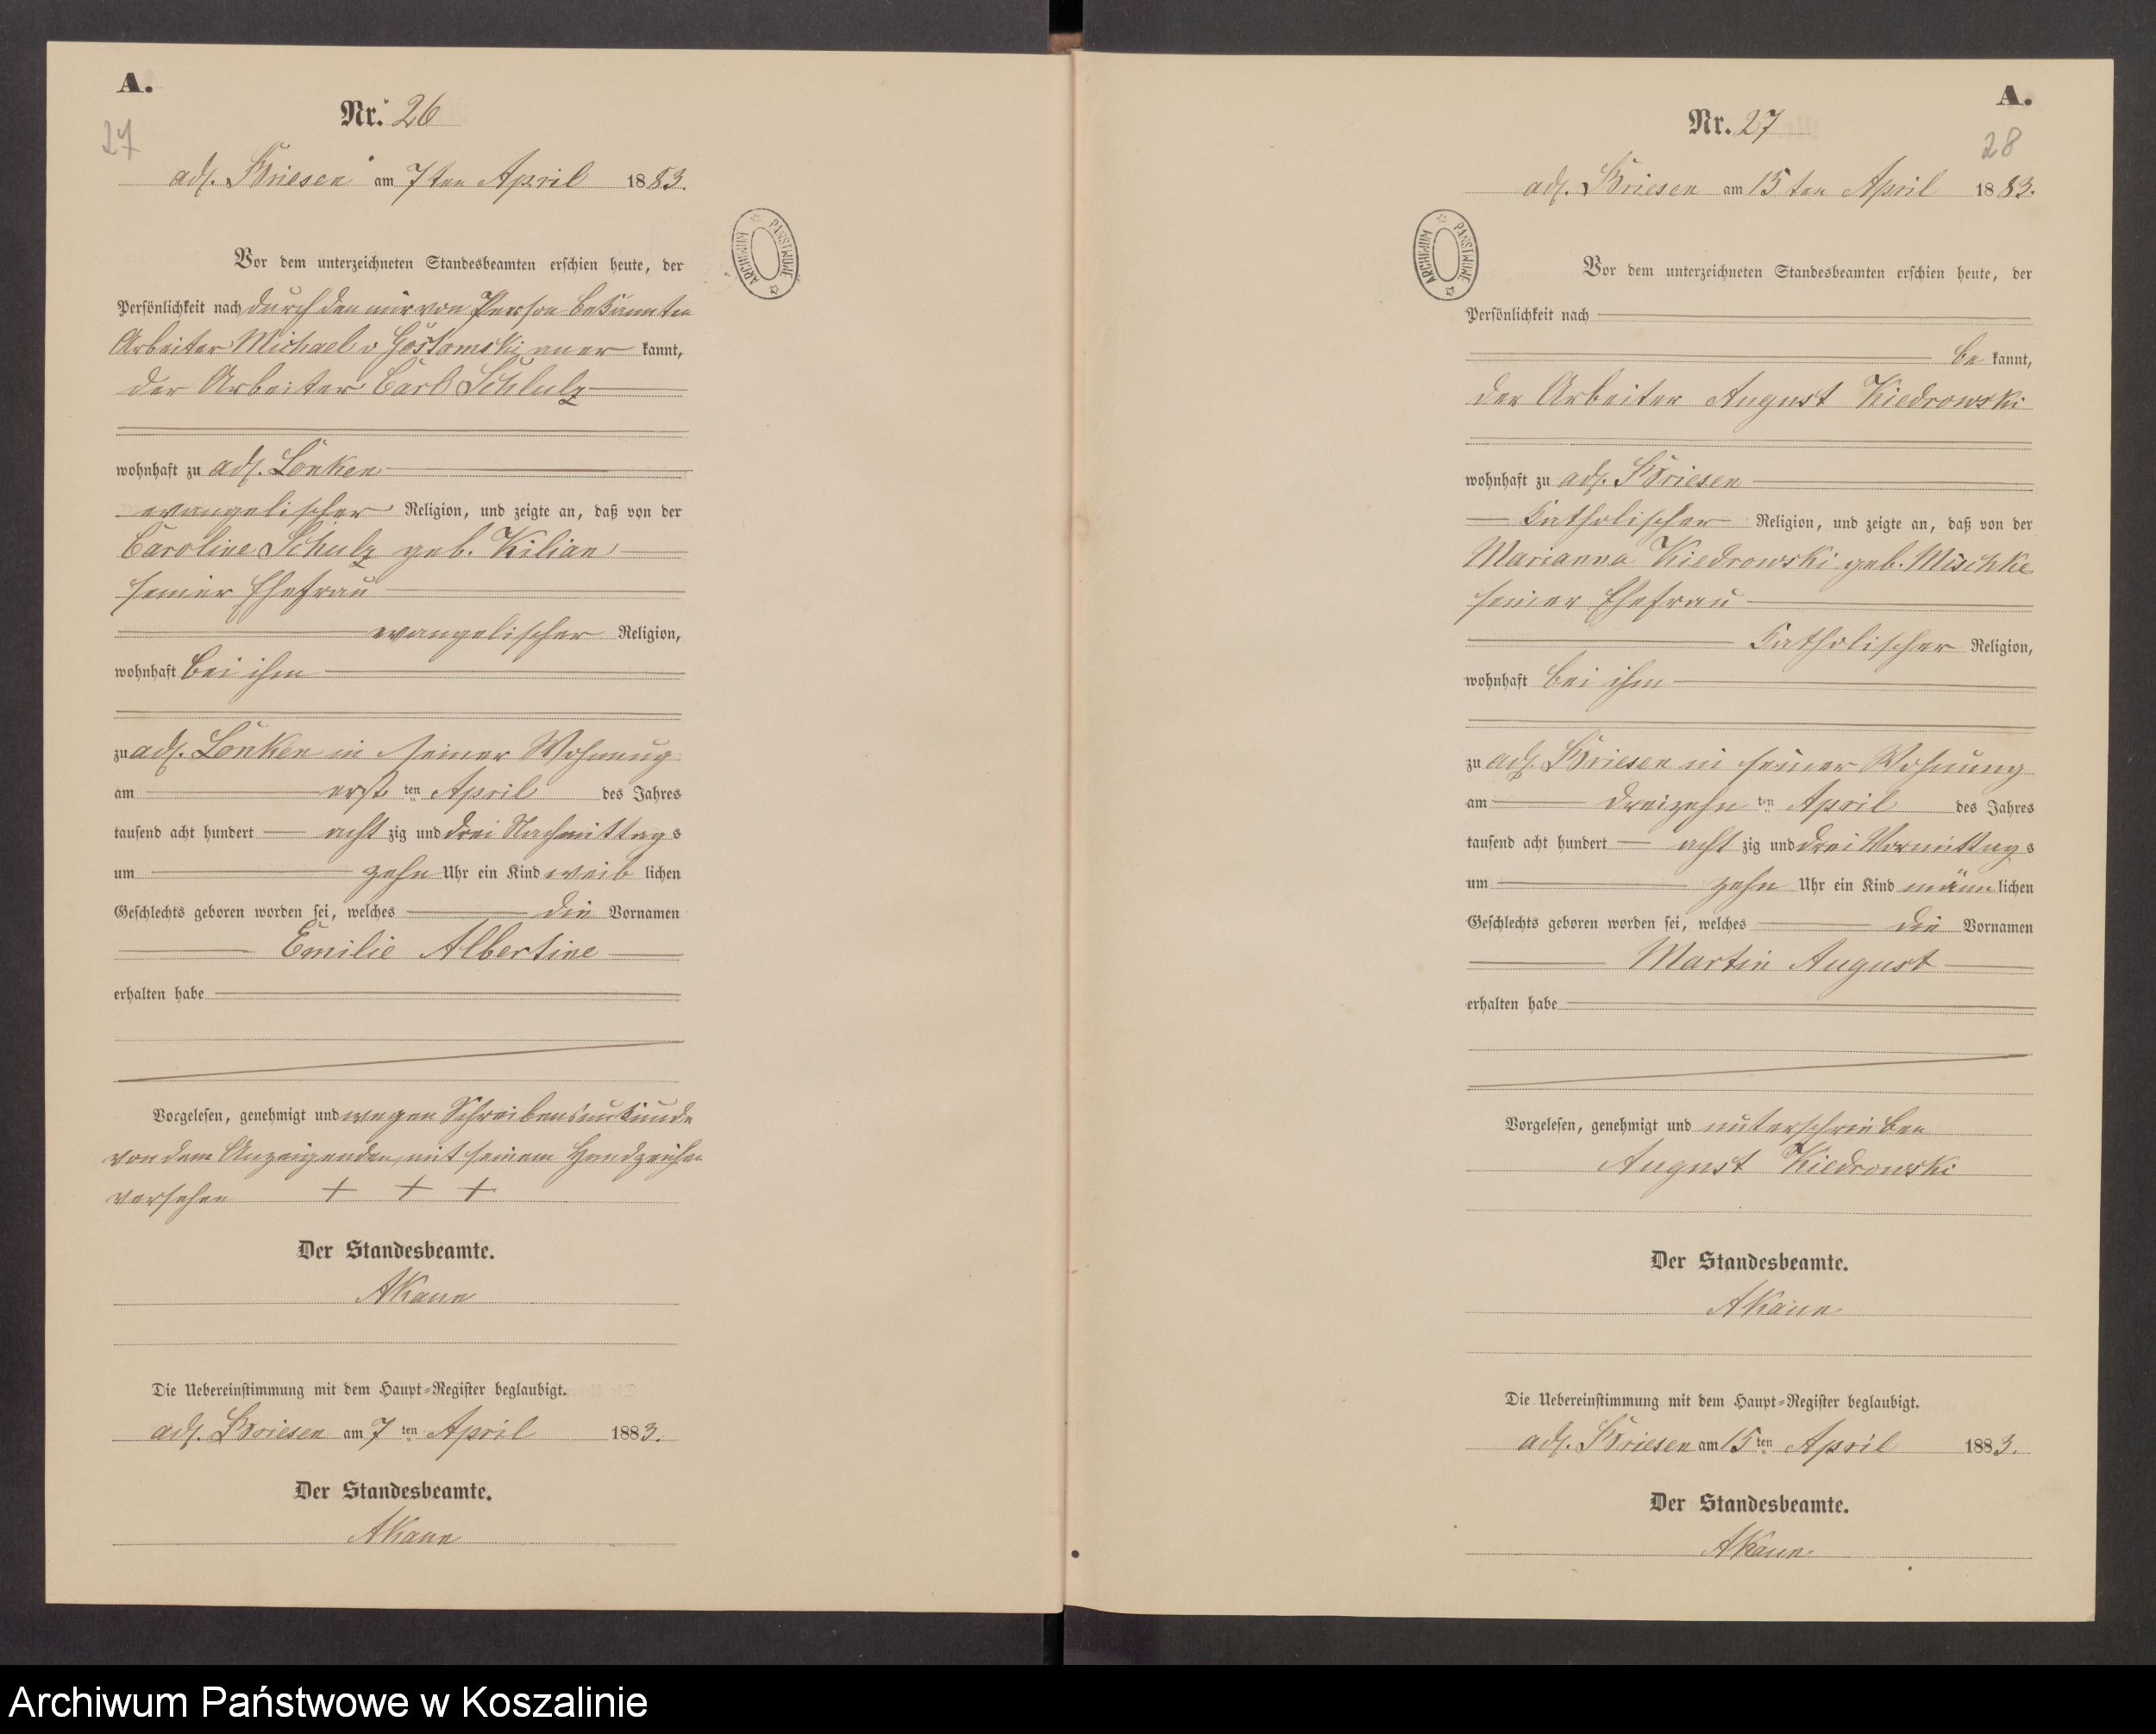 A.
27
Nr. 26
adl. Briesen am 7ten April 1883.
ARCHIWUM PAŃSTWOWE
Vor dem unterzeichneten Standesbeamten erschien heute, der
Persönlichkeit nach durch den mir von Person bekannten
Arbeiter Michael v Gostomski aner kannt,
der Arbeiter Carl Schulz
wohnhaft zu adl. Lonken
evangelischer Religion, und zeigte an, daß von der
Caroline Schulz geb. Kilian
seiner Ehefrau
evangelischer Religion,
wohnhaft bei ihm
zu adl. Lonken in seiner Wohnung
am erst ten April des Jahres
tausend acht hundert acht zig und drei Nachmittags
um zehn Uhr ein Kind weib lichen
Geschlechts geboren worden sei, welches die Vornamen
Emilie Albertine
erhalten habe
Vorgelesen, genehmigt und wegen Schreibensunkunde
von dem Anzeigenden mit seinem Handzeichen
versehen + + +
Der Standesbeamte.
AKaun
Die Uebereinstimmung mit dem Haupt-Register beglaubigt.
adl. Briesen am 7 ten April 1883.
Der Standesbeamte.
AKaun
A.
28
Nr. 27
adl. Briesen am 15ten April 1883.
ARCHIWUM PAŃSTWOWE
Vor dem unterzeichneten Standesbeamten erschien heute, der
Persönlichkeit nach
be kannt,
der Arbeiter August Kiedrowski
wohnhaft zu adl. Briesen
katholischer Religion, und zeigte an, daß von der
Marianna Kiedrowski geb. Mischke
seiner Ehefrau
katholischer Religion,
wohnhaft bei ihm
zu adl. Briesen in seiner Wohnung
am dreizehn ten April des Jahres
tausend acht hundert acht zig und drei Vormittags
um zehn Uhr ein Kind männ lichen
Geschlechts geboren worden sei, welches die Vornamen
Martin August
erhalten habe
Vorgelesen, genehmigt und unterschrieben
August Kiedrowski
Der Standesbeamte.
AKaun
Die Uebereinstimmung mit dem Haupt-Register beglaubigt.
adl. Briesen am 15 ten April 1883.
Der Standesbeamte.
AKaun
Archiwum Państwowe w Koszalinie